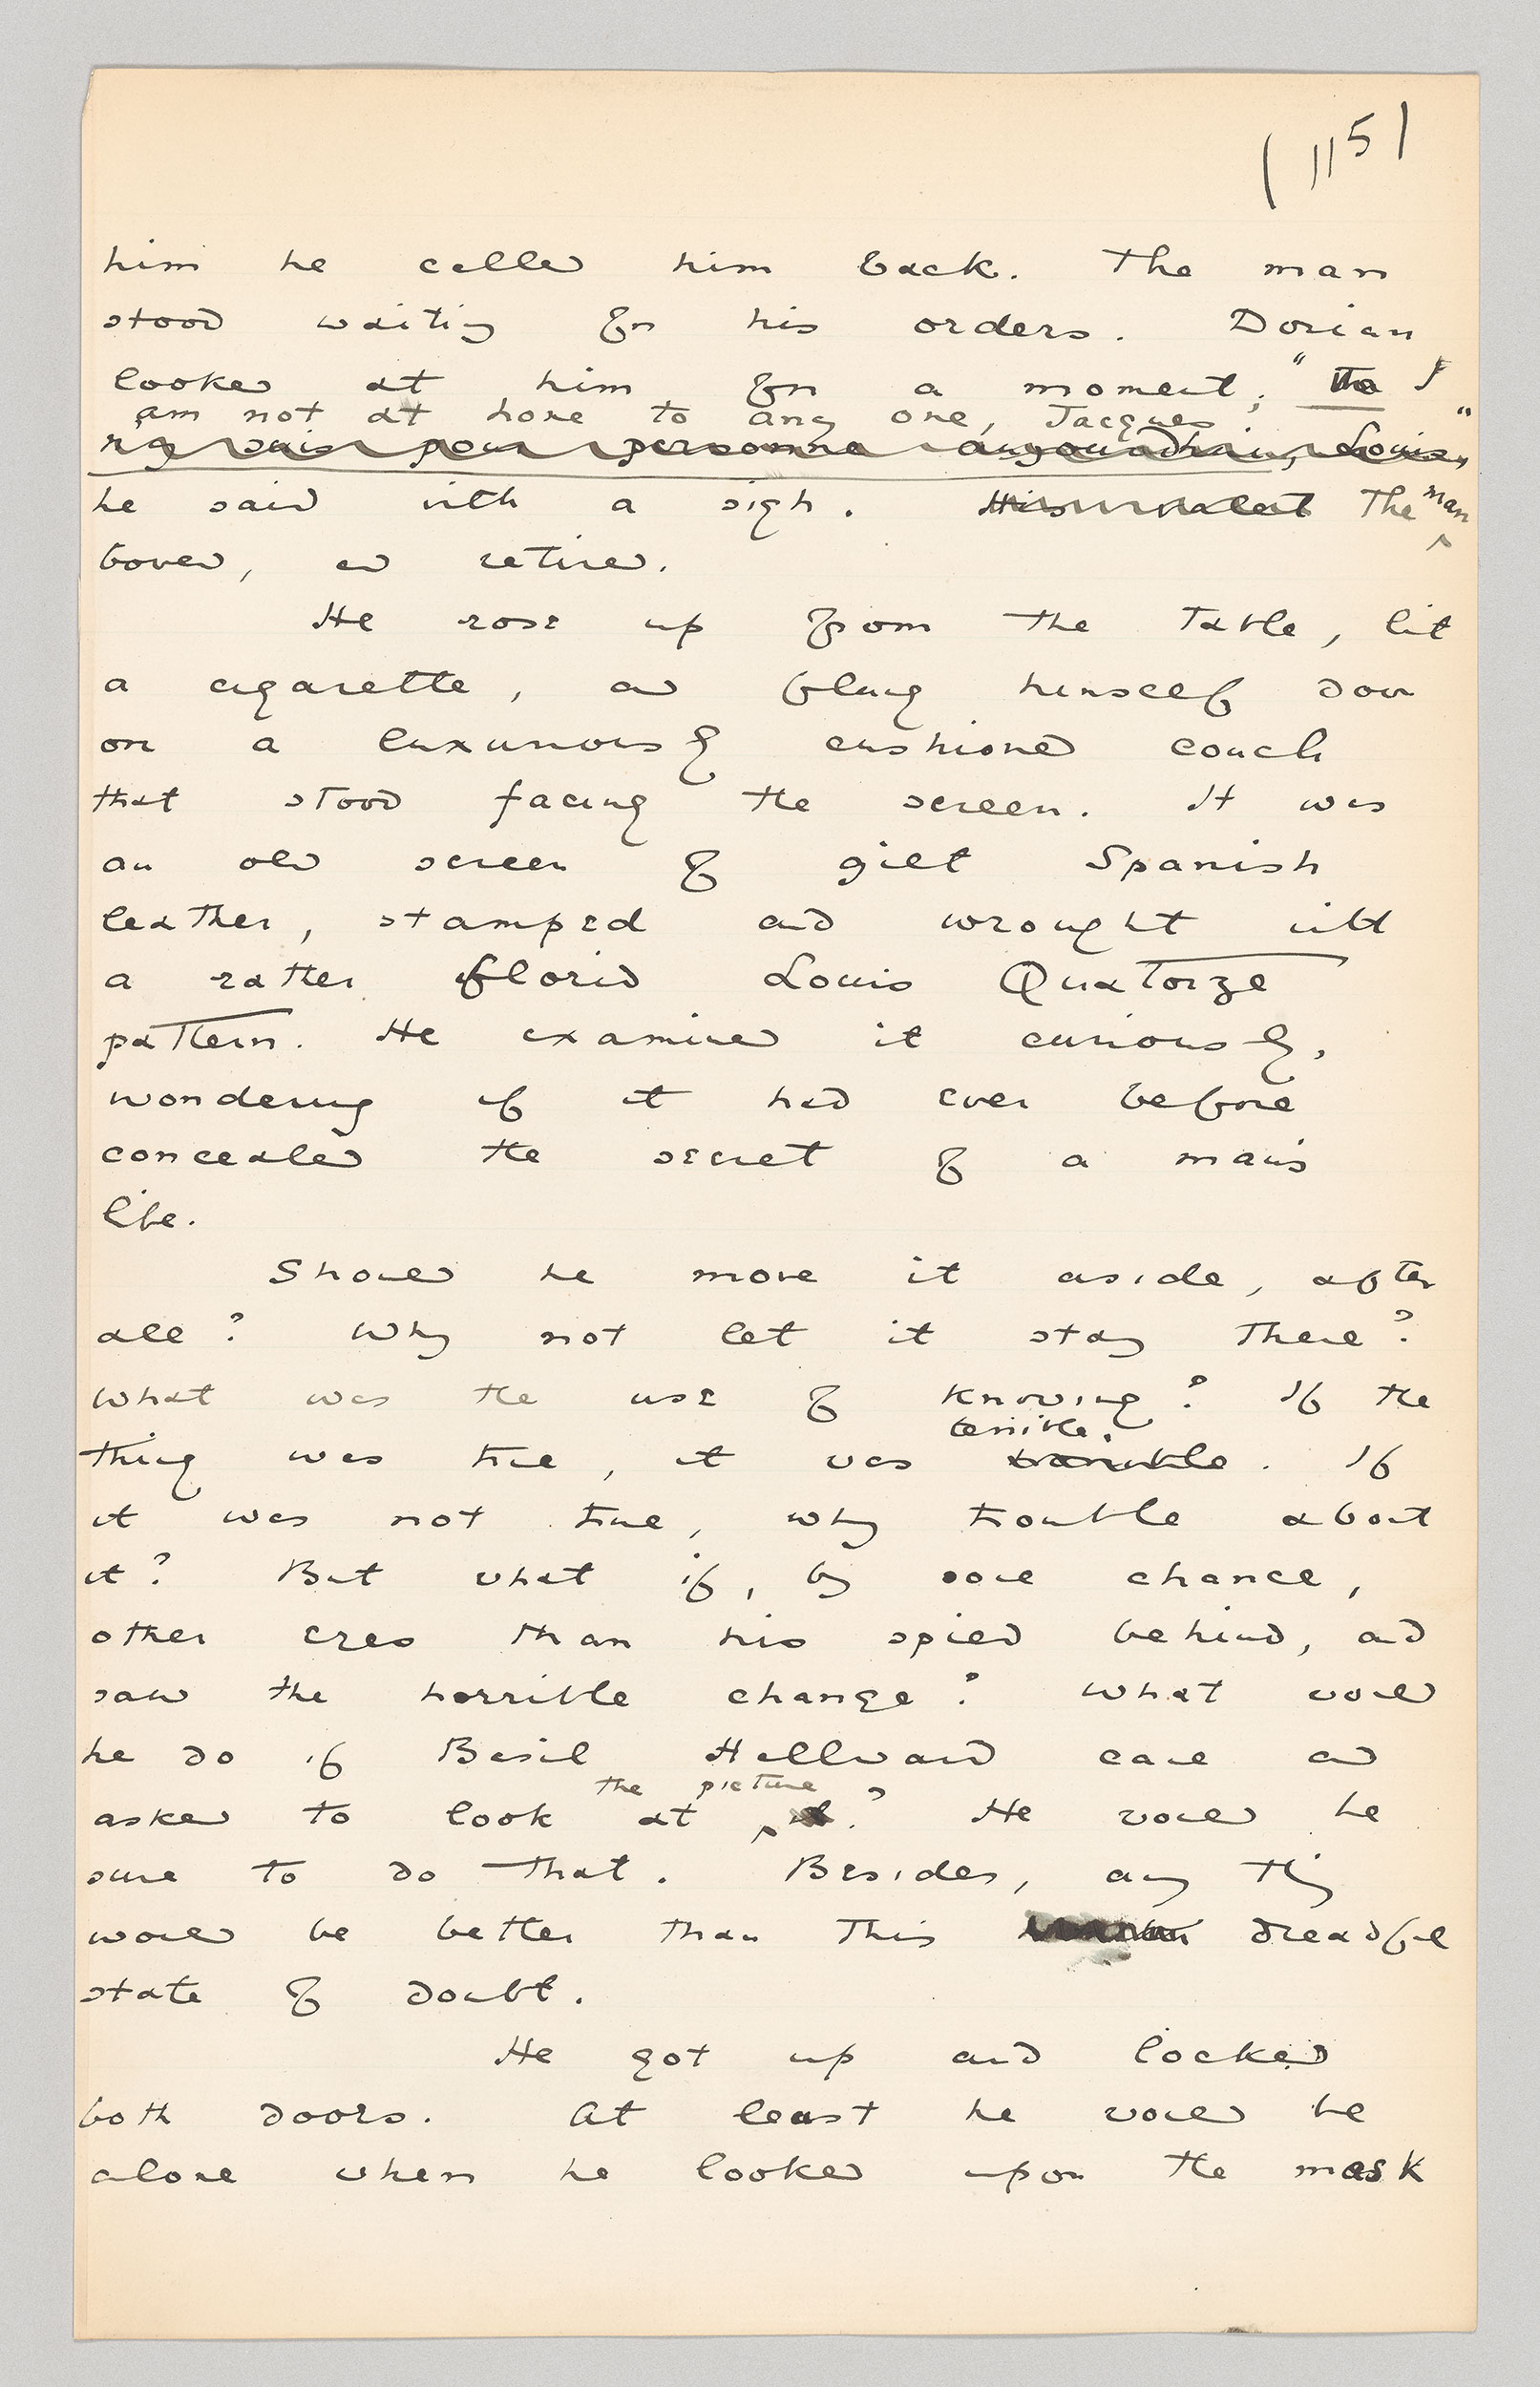 (115)
him he called him back. The man
stood waiting for his orders. Dorian
looked at him for a moment. "I
am not at home to any one, Jacques"
n'y suis pour personne aujourd'hui, Louis"
he said with a sigh. His valet The man
bowed, and retired.
He rose up from the table, lit
a cigarette, and flung himself down
on a luxuriously cushioned couch
that stood facing the screen. It was
an old screen of gilt Spanish
leather, stamped and wrought with
a rather florid Louis Quatorze
pattern. He examined it curiously,
wondering if it had ever before
concealed the secret of a man's
life.
Should he move it aside, after
all? Why not let it stay there?
What was the use of knowing? If the
terrible.
thing was true, it was terrible. If
it was not true, why trouble about
it? But what if, by some chance,
other eyes than his spied behind, and
saw the horrible change? What would
he do if Basil Hallward came and
the picture
asked to look at it? He would be
sure to do that. Besides, any thing
would be better than this dreadful
state of doubt.
He got up and locked
both doors. At least he would be
alone when he looked upon the mask